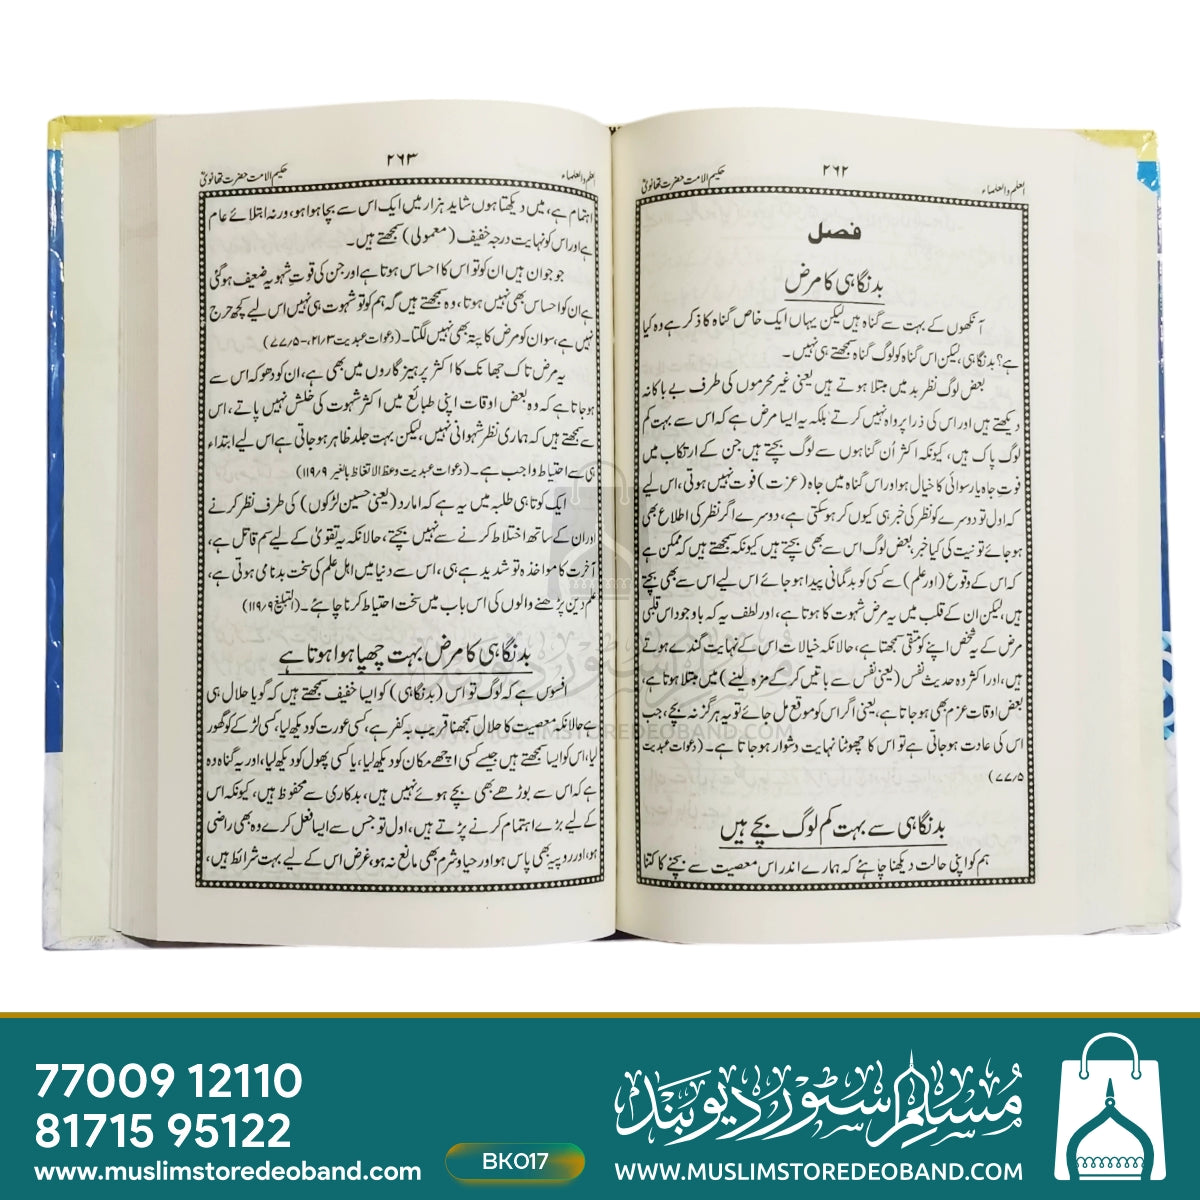 العلم والعلماء
۲۶۲
حکیم الامت حضرت تھانویؒ
فصل
بدنگاہی کا مرض
آنکھوں کے بہت سے گناہ ہیں لیکن یہاں ایک خاص گناہ کا ذکر ہے وہ کیا
ہے؟ بدنگاہی، لیکن اس گناہ کو لوگ گناہ سمجھتے ہی نہیں۔
بعض لوگ نظر بد میں مبتلا ہوتے ہیں یعنی غیر محرموں کی طرف بے باکانہ
دیکھتے ہیں اور اس کی ذرا پرواہ نہیں کرتے بلکہ یہ ایسا مرض ہے کہ اس سے بہت کم
لوگ پاک ہیں، کیونکہ اکثر اُن گناہوں سے لوگ بچتے ہیں جن کے ارتکاب میں
فوتِ جاہ یا رسوائی کا خیال ہو اور اس گناہ میں جاہ (عزت) فوت نہیں ہوتی، اس لیے
کہ اول تو دوسرے کو نظر کی خبر ہی کیوں کر ہو سکتی ہے، دوسرے اگر نظر کی اطلاع بھی
ہو جائے تو نیت کی کیا خبر، بعض لوگ اس سے بھی بچتے ہیں کیونکہ سمجھتے ہیں کہ ممکن ہے
کہ اس کے وقوع (اور علم) سے کسی کو بدگمانی پیدا ہو جائے اس لیے اس سے بھی بچتے
ہیں، لیکن ان کے قلب میں یہ مرض شہوت کا ہوتا ہے، اور لطف یہ کہ باوجود اس قلبی
مرض کے یہ شخص اپنے کو متقی سمجھتا ہے، حالانکہ خیالات اس کے نہایت گندے ہوتے
ہیں، اور اکثر وہ حدیث نفس (یعنی نفس سے باتیں کر کے مزہ لینے) میں مبتلا ہوتا ہے،
بعض اوقات عزم بھی ہو جاتا ہے، یعنی اگر اس کو موقع مل جائے تو یہ ہرگز نہ بچے، جب
اس کی عادت ہو جاتی ہے تو اس کا چھوٹنا نہایت دشوار ہو جاتا ہے۔ (دعوات عبدیت
۷۷/۵)
بدنگاہی سے بہت کم لوگ بچے ہیں
ہم کو اپنی حالت دیکھنا چاہئے کہ ہمارے اندر اس معصیت سے بچنے کا کتنا
العلم والعلماء
۲۶۳
حکیم الامت حضرت تھانویؒ
اہتمام ہے، میں دیکھتا ہوں شاید ہزار میں ایک اس سے بچا ہوا ہو، ورنہ ابتلائے عام
ہے اور اس کو نہایت درجہ خفیف (معمولی) سمجھتے ہیں۔
جو جوان ہیں ان کو تو اس کا احساس ہوتا ہے اور جن کی قوتِ شہویہ ضعیف ہوگئی
ہے ان کو احساس بھی نہیں ہوتا، وہ سمجھتے ہیں کہ ہم کو تو شہوت ہی نہیں اس لیے کچھ حرج
نہیں ہے، سو ان کو مرض کا پتہ بھی نہیں لگتا۔ (دعوات عبدیت ۲۱/۳، ۷۷/۵)
یہ مرض تاک جھانک کا اکثر پرہیزگاروں میں بھی ہے، ان کو دھوکہ اس سے
ہو جاتا ہے کہ وہ بعض اوقات اپنی طبائع میں اکثر شہوت کی خلش نہیں پاتے، اس
سے سمجھتے ہیں کہ ہماری نظر شہوانی نہیں، لیکن بہت جلد ظاہر ہو جاتی ہے اس لیے ابتداء
ہی سے احتیاط واجب ہے۔ (دعوات عبدیت وعظ الاتعاظ بالغیر ۱۱۹/۹)
ایک کوتاہی طلبہ میں یہ ہے کہ امارد (یعنی حسین لڑکوں) کی طرف نظر کرنے
اور ان کے ساتھ اختلاط کرنے سے نہیں بچتے، حالانکہ یہ تقویٰ کے لیے سم قاتل ہے،
آخرت کا مواخذہ تو شدید ہے ہی، اس سے دنیا میں اہل علم کی سخت بدنامی ہوتی ہے،
علم دین پڑھنے والوں کی اس باب میں سخت احتیاط کرنا چاہئے۔ (التبلیغ ۱۱۹/۹)
بدنگاہی کا مرض بہت چھپا ہوا ہوتا ہے
افسوس ہے کہ لوگ تو اس (بدنگاہی) کو ایسا خفیف سمجھتے ہیں کہ گویا حلال ہی
ہے حالانکہ معصیت کا حلال سمجھنا قریب بہ کفر ہے، کسی عورت کو دیکھ لیا، کسی لڑکے کو گھور
لیا، اس کو ایسا سمجھتے ہیں جیسے کسی اچھے مکان کو دیکھ لیا، یا کسی پھول کو دیکھ لیا، اور یہ گناہ وہ
ہے کہ اس سے بوڑھے بھی بچے ہوئے نہیں ہیں، بدکاری سے محفوظ ہیں، کیونکہ اس
کے لیے بڑے اہتمام کرنے پڑتے ہیں، اول تو جس سے ایسا فعل کرے وہ بھی راضی
ہو، اور روپیہ بھی پاس ہو اور حیا و شرم بھی مانع نہ ہو، غرض اس کے لیے بہت شرائط ہیں،
مسلم سٹور دیوبند
WWW.MUSLIMSTOREDEOBAND.COM
77009 12110
81715 95122
www.muslimstoredeoband.com
BK017
مسلم سٹور دیوبند
WWW.MUSLIMSTOREDEOBAND.COM